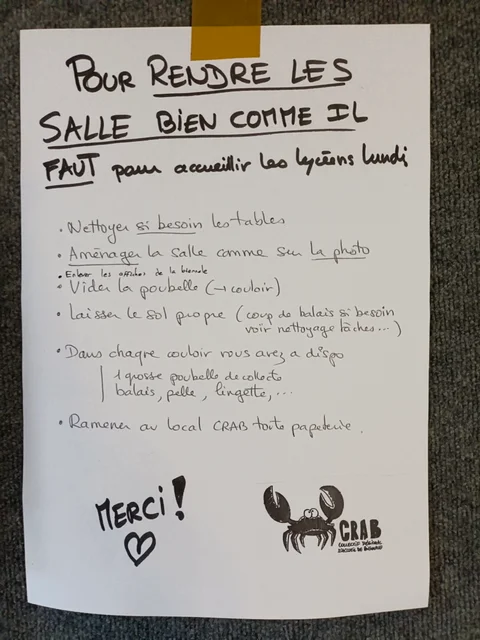 POUR RENDRE LES
SALLE BIEN COMME IL
FAUT pour accueillir les lycéens lundi
• Nettoyer si besoin les tables
• Aménager la salle comme sur la photo
• Enlever les affiches de la biennale
• Vider la poubelle (→ couloir)
• Laisser le sol propre (coup de balais si besoin
voir nettoyage tâches...)
• Dans chaque couloir vous avez a dispo
1 grosse poubelle de collecte
balais, pelle, lingette, ...
• Ramener au local CRAB toute papeterie.
MERCI !
CRAB
COLLECTIF
D'ACCUEIL DE